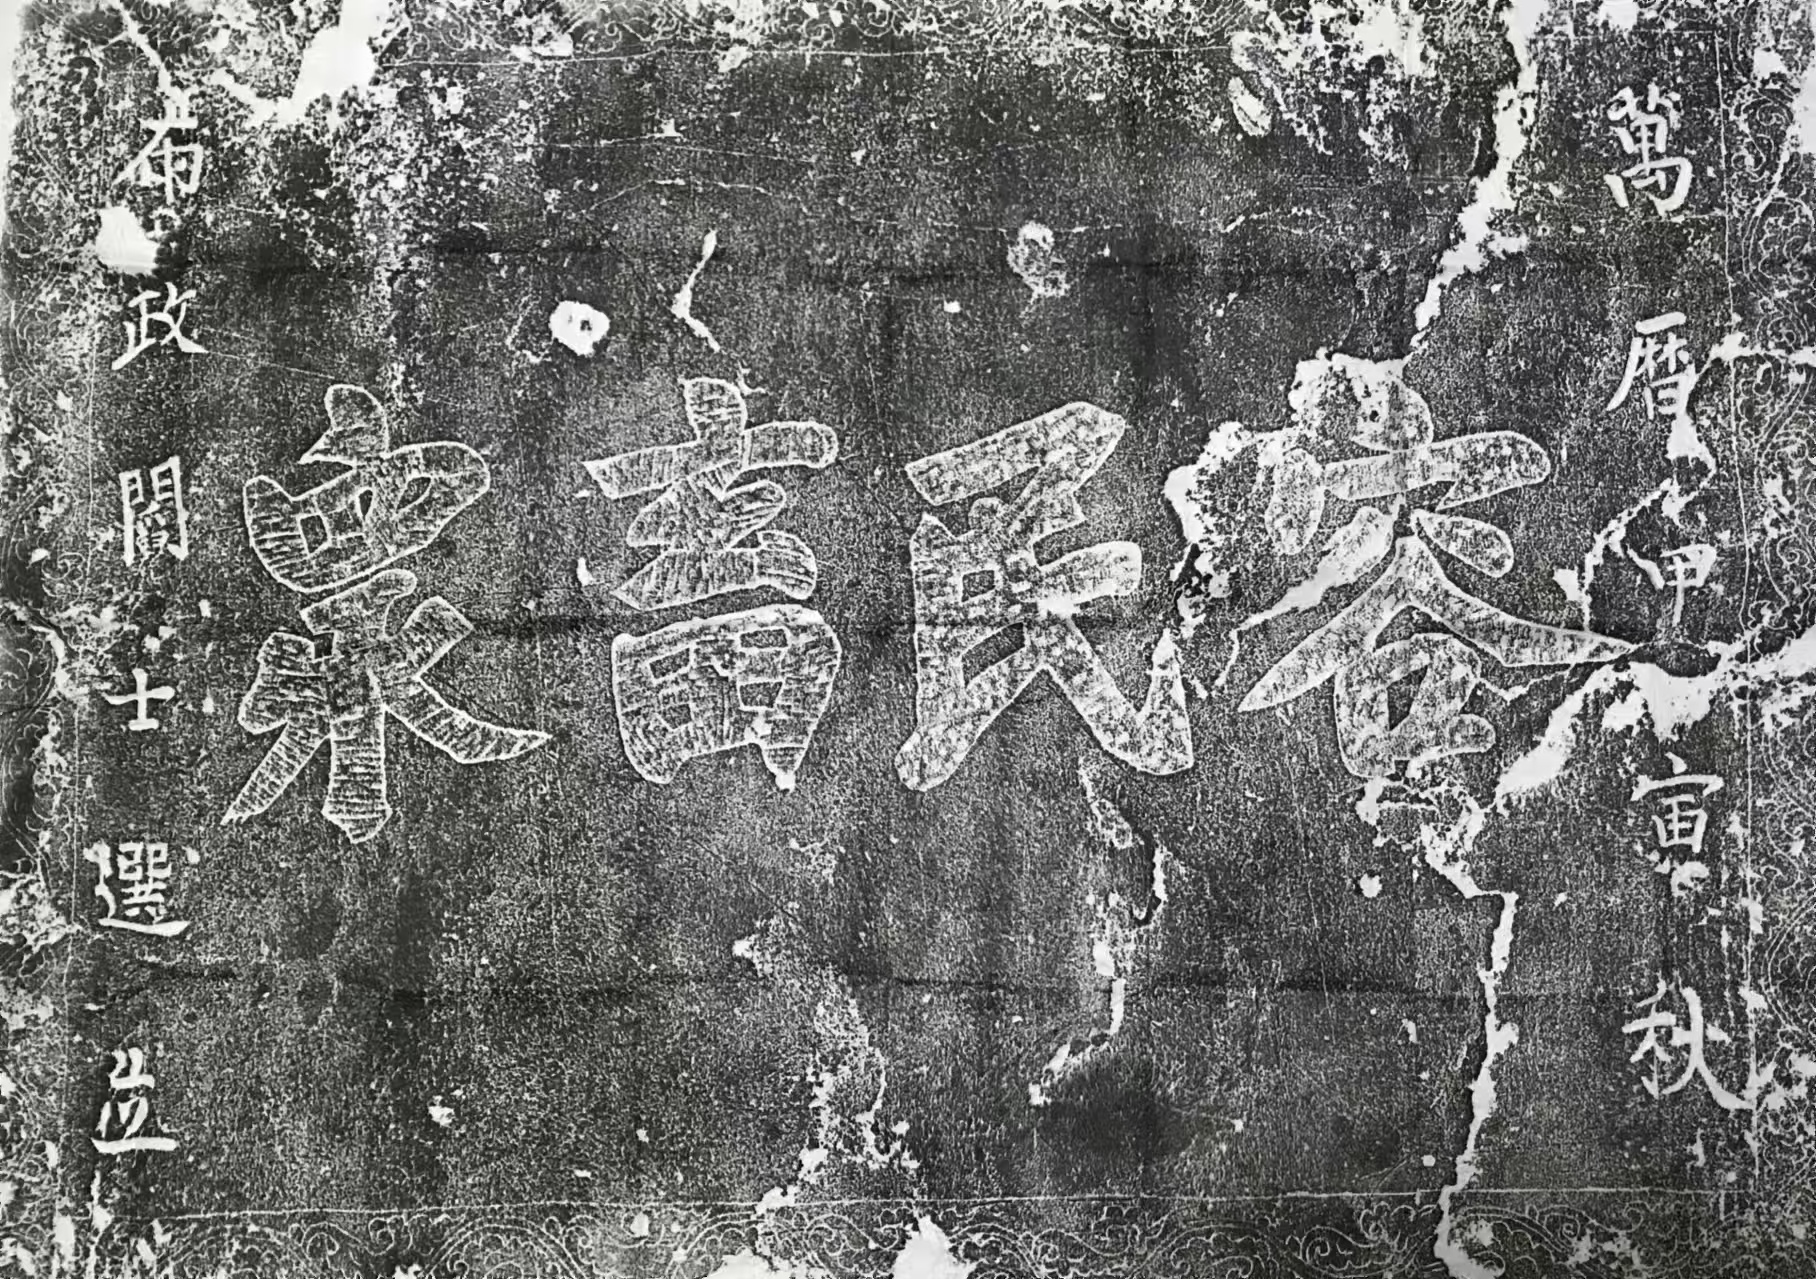 萬曆甲寅秋
容民畜衆
布政閻士選立